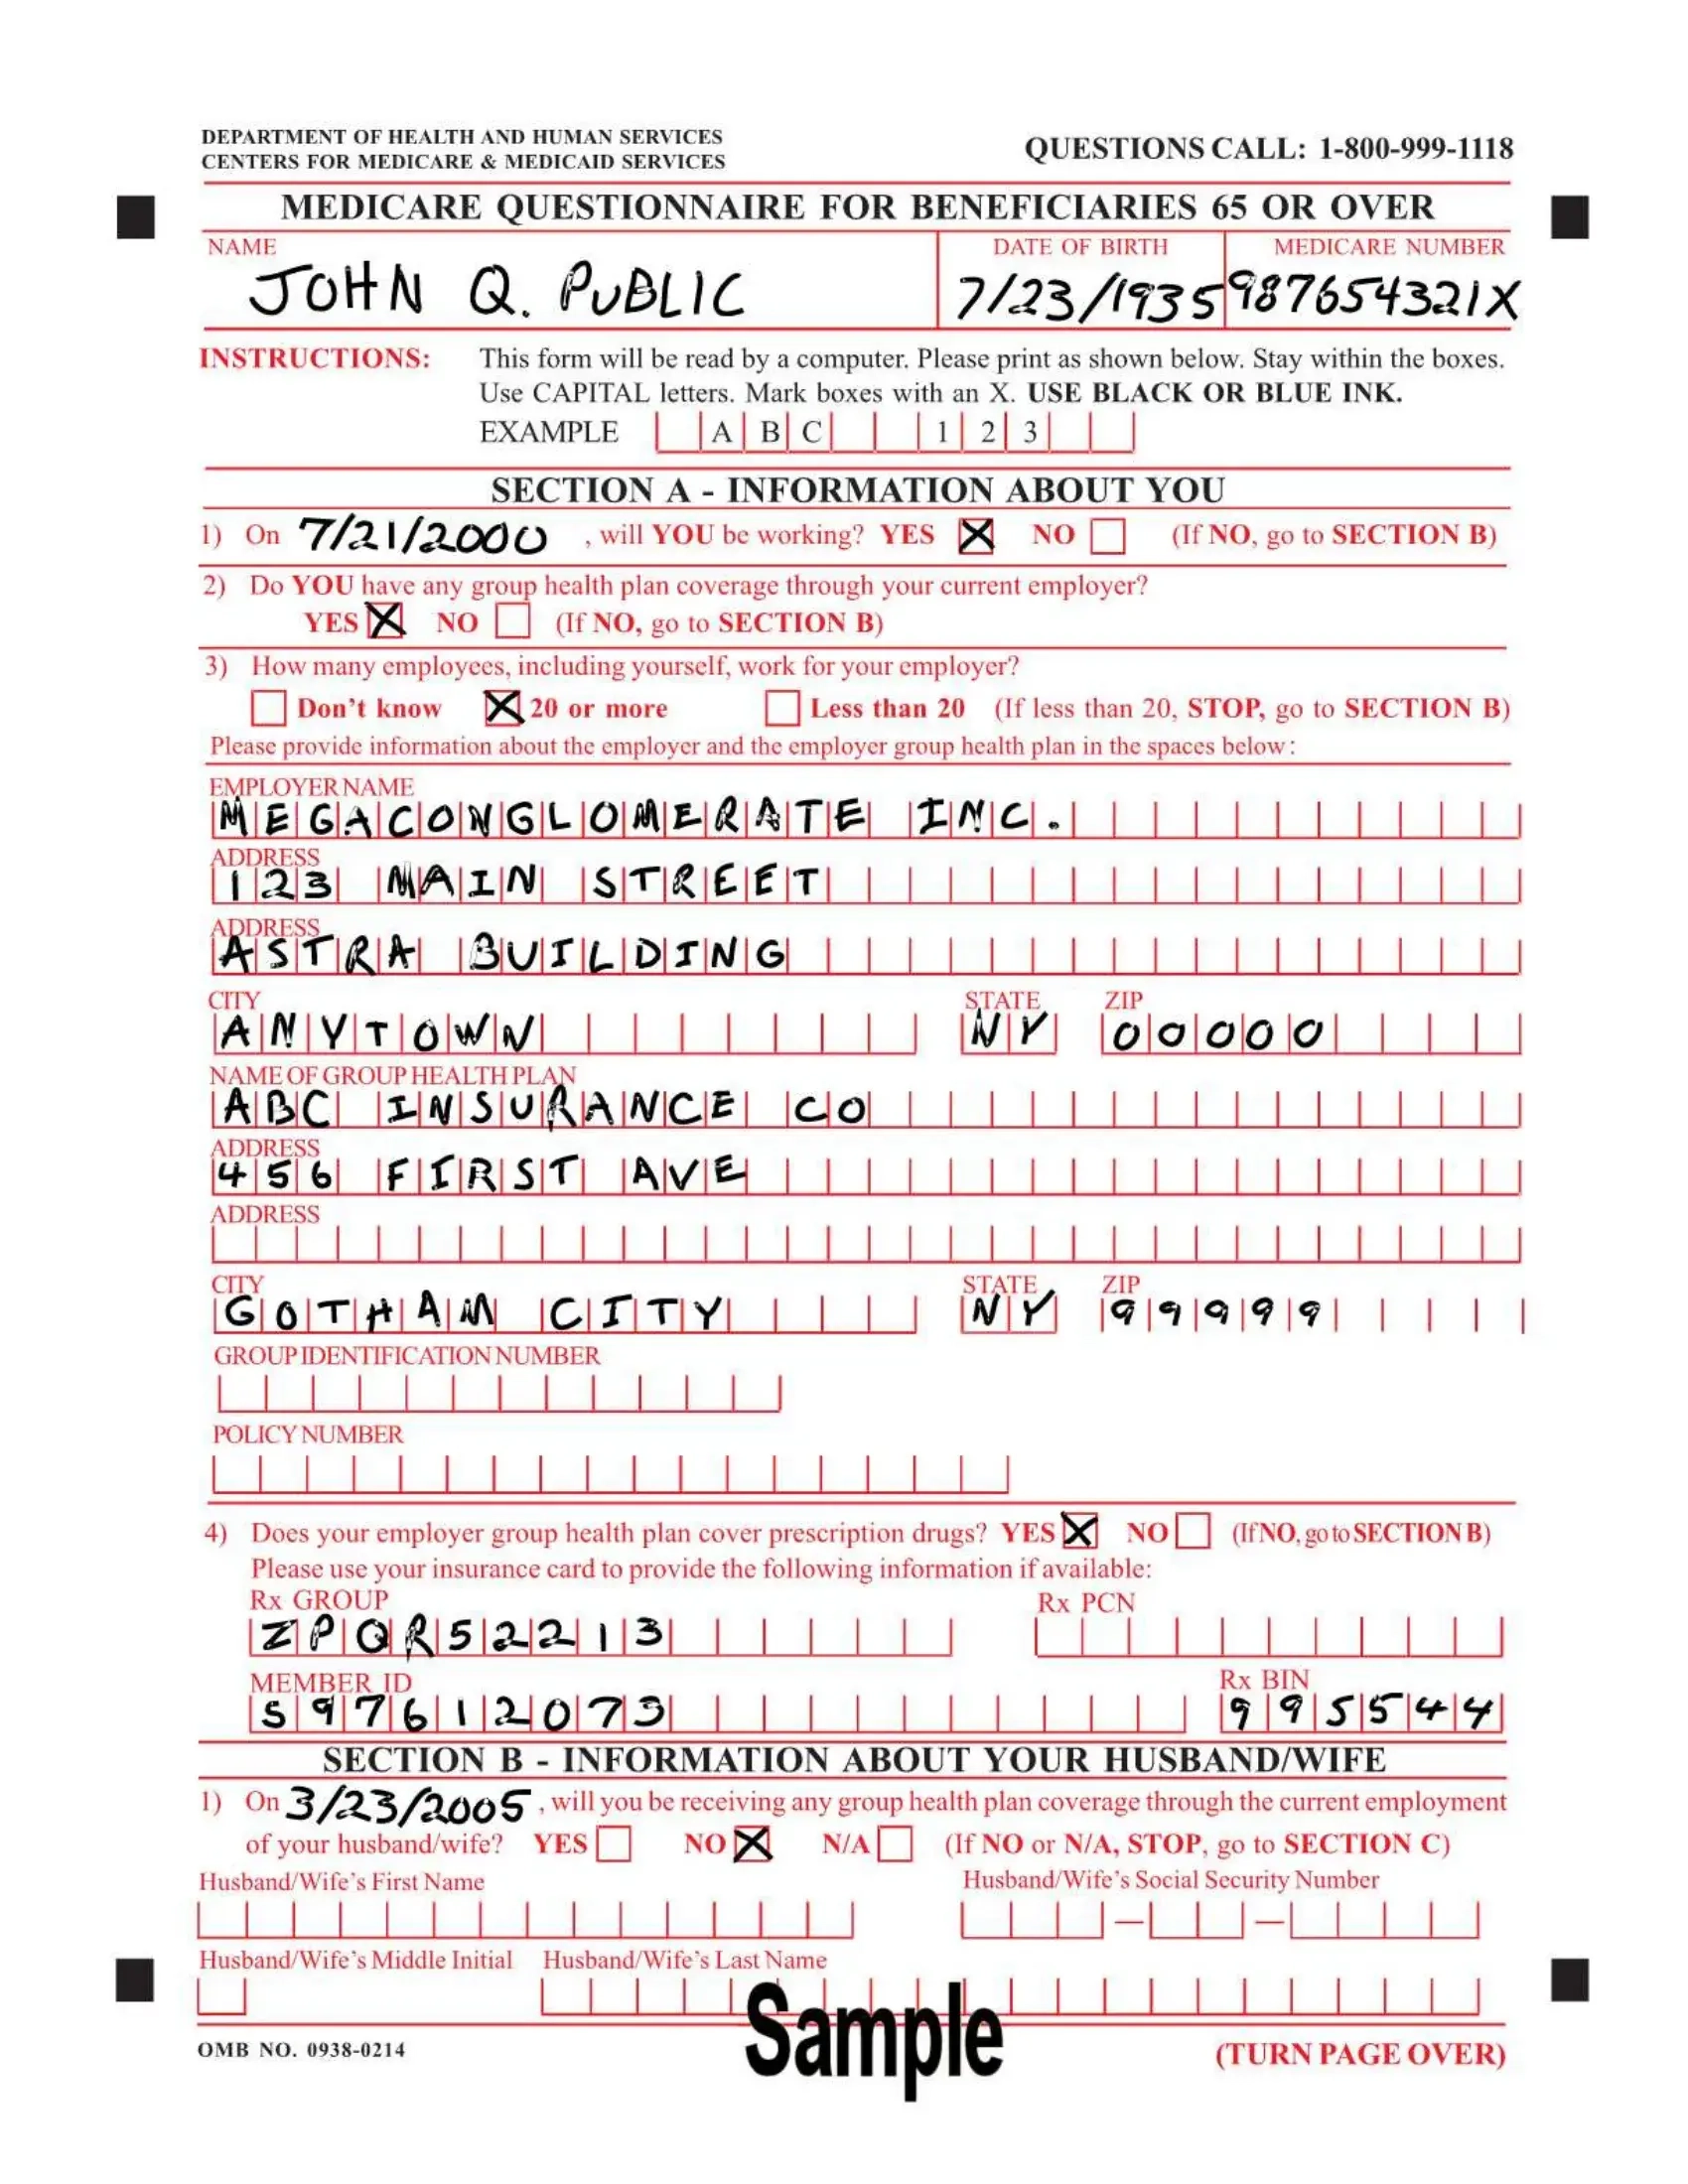 DEPARTMENT OF HEALTH AND HUMAN SERVICES
CENTERS FOR MEDICARE & MEDICAID SERVICES
QUESTIONS CALL: 1-800-999-1118
MEDICARE QUESTIONNAIRE FOR BENEFICIARIES 65 OR OVER
NAME DATE OF BIRTH MEDICARE NUMBER
JOHN Q. PUBLIC 7/23/1935 987654321X
INSTRUCTIONS: This form will be read by a computer. Please print as shown below. Stay within the boxes.
Use CAPITAL letters. Mark boxes with an X. USE BLACK OR BLUE INK.
EXAMPLE A B C 1 2 3
SECTION A - INFORMATION ABOUT YOU
1) On 7/21/2000 , will YOU be working? YES X NO (If NO, go to SECTION B)
2) Do YOU have any group health plan coverage through your current employer?
YES X NO (If NO, go to SECTION B)
3) How many employees, including yourself, work for your employer?
Don't know X 20 or more Less than 20 (If less than 20, STOP, go to SECTION B)
Please provide information about the employer and the employer group health plan in the spaces below:
EMPLOYER NAME
MEGACONGLOMERATE INC.
ADDRESS
123 MAIN STREET
ADDRESS
ASTRA BUILDING
CITY STATE ZIP
ANYTOWN NY 00000
NAME OF GROUP HEALTH PLAN
ABC INSURANCE CO
ADDRESS
456 FIRST AVE
ADDRESS
CITY STATE ZIP
GOTHAM CITY NY 99999
GROUP IDENTIFICATION NUMBER
POLICY NUMBER
4) Does your employer group health plan cover prescription drugs? YES X NO (If NO, go to SECTION B)
Please use your insurance card to provide the following information if available:
Rx GROUP Rx PCN
ZPQR52213
MEMBER ID Rx BIN
S97612073 995544
SECTION B - INFORMATION ABOUT YOUR HUSBAND/WIFE
1) On 3/23/2005 , will you be receiving any group health plan coverage through the current employment
of your husband/wife? YES NO X N/A (If NO or N/A, STOP, go to SECTION C)
Husband/Wife's First Name Husband/Wife's Social Security Number
Husband/Wife's Middle Initial Husband/Wife's Last Name
Sample
OMB NO. 0938-0214 (TURN PAGE OVER)